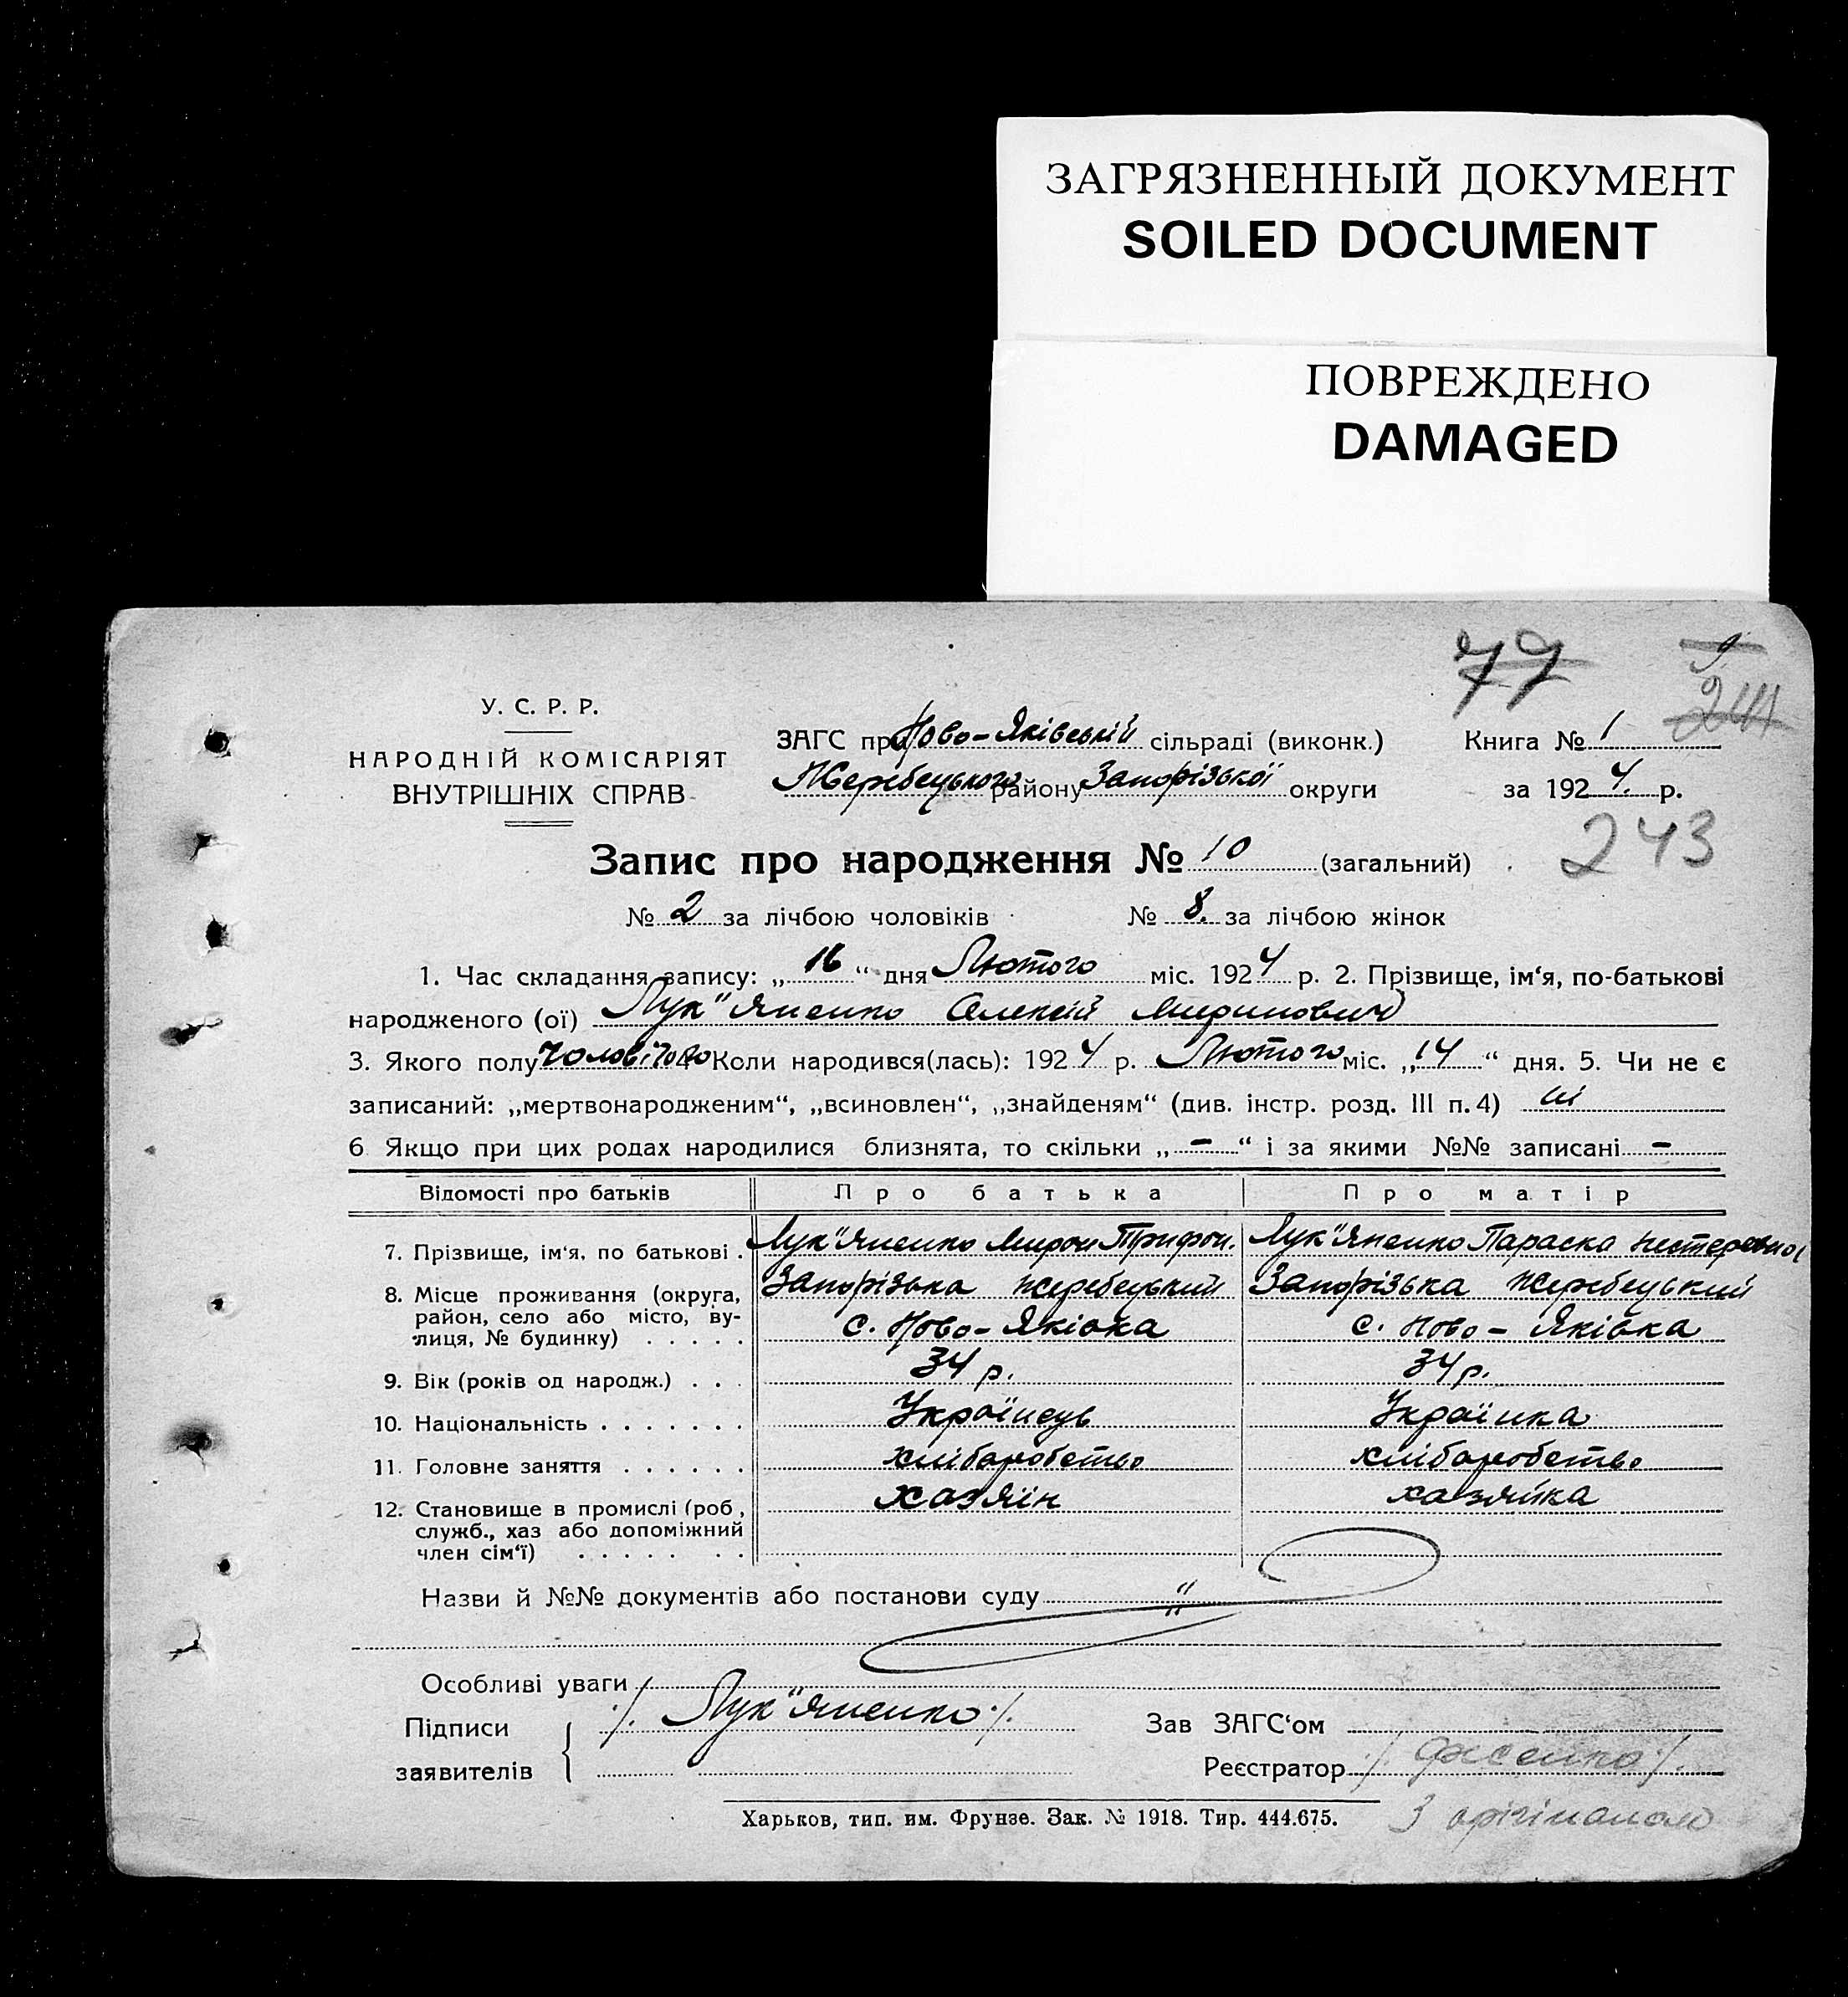 ЗАГРЯЗНЕННЫЙ ДОКУМЕНТ
SOILED DOCUMENT
ПОВРЕЖДЕНО
DAMAGED
77
244
У. С. Р. Р.
НАРОДНІЙ КОМІСАРІЯТ
ВНУТРІШНІХ СПРАВ
ЗАГС при Ново-Яківській сільраді (виконк.)
Жеребецького району Запорізької округи
Книга № 1
за 1924. р.
243
Запис про народження № 10 (загальний)
№ 2 за лічбою чоловіків № 8. за лічбою жінок
1. Час складання запису: „16“ дня Лютого міс. 1924 р. 2. Прізвище, ім‘я, по-батькові
народженого (ої) Лук"яненко Олексій Миринович
3. Якого полу чоловічого 4 Коли народився(лась): 1924 р. Лютого міс. „14“ дня. 5. Чи не є
записаний: „мертвонародженим“, „всиновлен“, „знайденям“ (див. інстр. розд. III п. 4) ні
6 Якщо при цих родах народилися близнята, то скільки „-“ і за якими №№ записані -
Відомості про батьків Про батька Про матір
7. Прізвище, ім‘я, по батькові . Лук"яненко Мирон Трифон. Лук"яненко Параска Нестеревна
8. Місце проживання (округа, район, село або місто, вулиця, № будинку) . . . . . Запорізька Жеребецький Запорізька Жеребецький
с. Ново-Яківка с. Ново-Яківка
9. Вік (років од народж.) . . . 34 р. 34 р.
10. Національність . . . . . . . Українець Українка
11. Головне заняття . . . . . . хліборобство хліборобство
12. Становище в промислі (роб, служб., хаз або допоміжний член сім‘ї) . . . . . . . хазяїн хазяйка
Назви й №№ документів або постанови суду "
Особливі уваги
Підписи заявителів /. Лук"яненко ./.
Зав ЗАГС‘ом
Реєстратор
Харьков, тип. им. Фрунзе. Зак. № 1918. Тир. 444.675.
З орігіналом